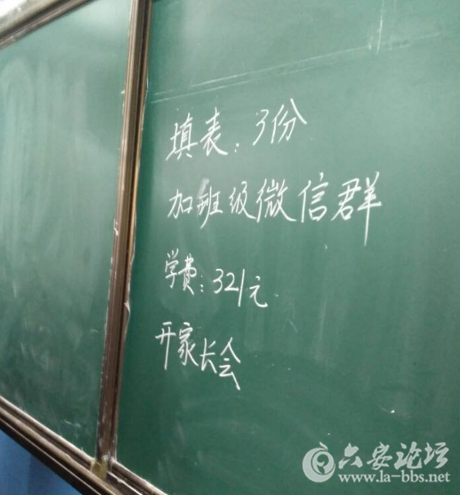 填表：3份
加班级微信群
学费：321元
开家长会
六安论坛
www.la-bbs.net